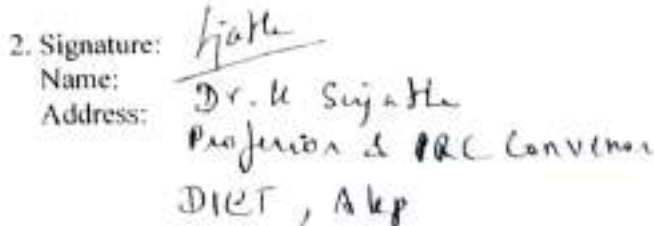 2. Signature:
Name: Dr. K. Sujatha
Address: Professor & PRC Convenor
DIET, Akp